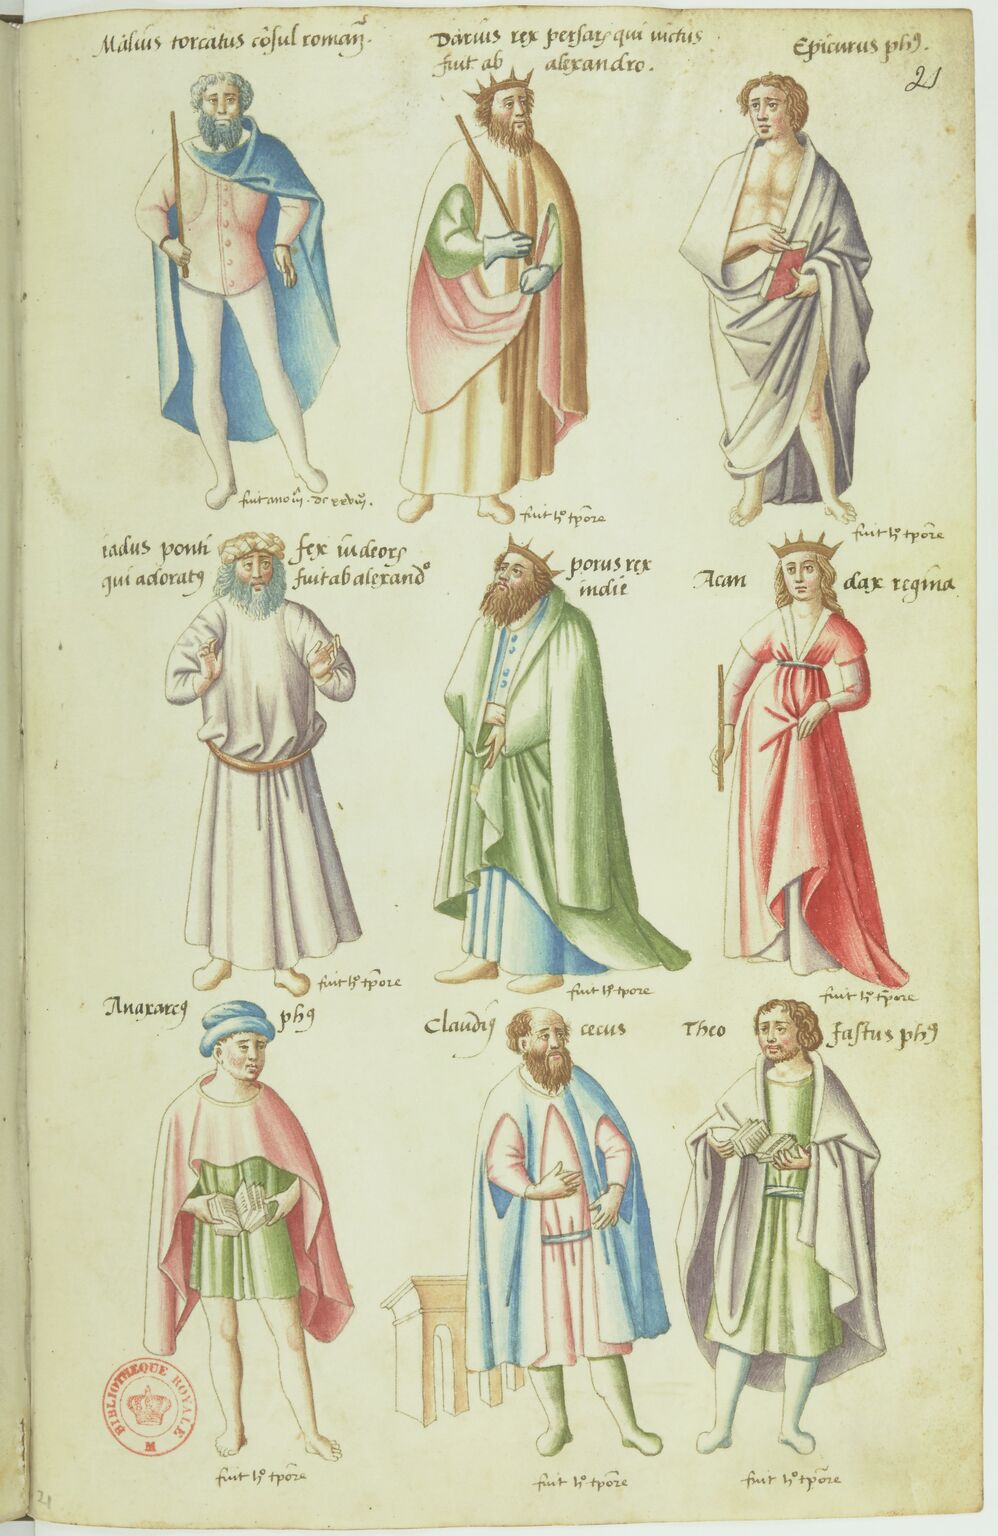 Mãlius torcatus cõsul romanꝝ.
Darius rex persaꝝ qui uictus
fuit ab alexandro.
Epicurus phꝰ.
21
fuit ano iii. dc xxviii.
fuit hº tpõre
fuit hº tpõre
iadus ponti fex iudeorꝝ
qui adoratꝰ fuit ab alexandº
porus rex
indie
Acan dax regina
fuit hº tpõre
fuit hº tpore
fuit hº tpõre
Anaxarcꝰ phꝰ
Claudiꝰ cecus
Theo fastus phꝰ
BIBLIOTHEQUE ROYALE
M
fuit hº tpõre
fuit hº tpõre
fuit hº tpõre
21